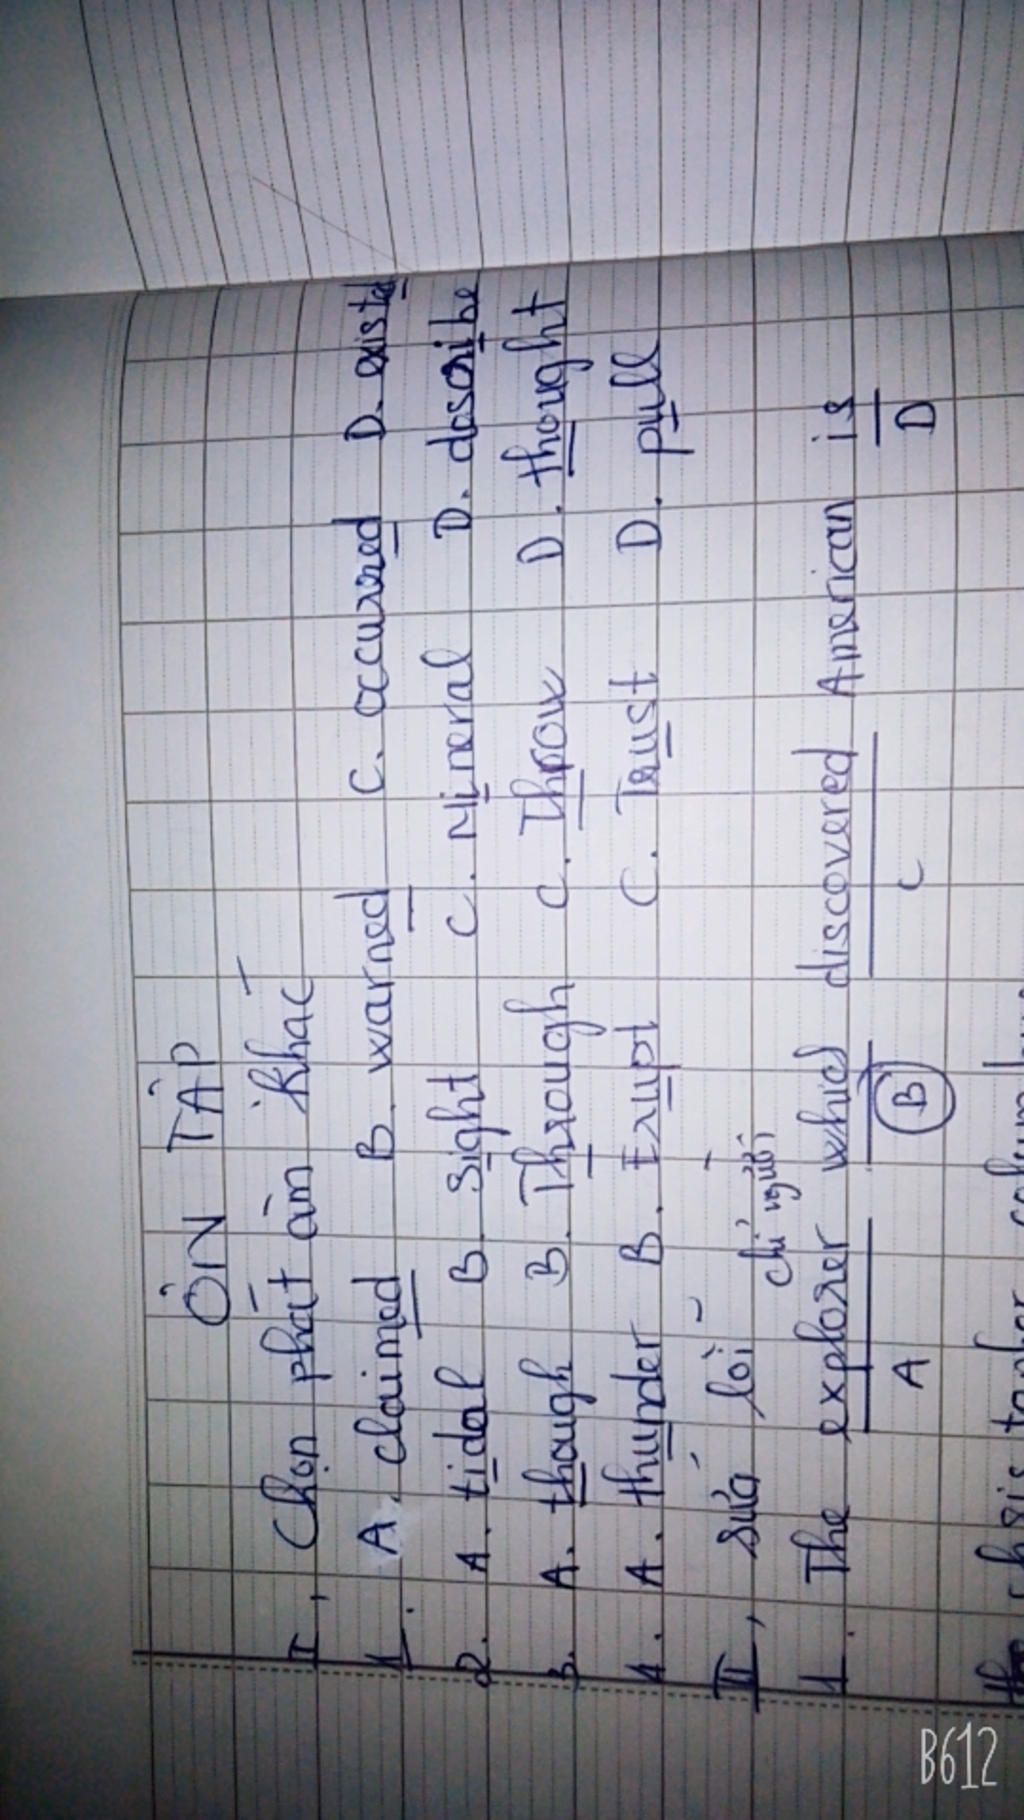 ÔN TẬP
I, Chọn phát âm khác
1. A. claimed B. warned C. occurred D. existed
2. A. tidal B. Sight C. Mineral D. describe
3. A. though B. Through C. Throw D. thought
4. A. thunder B. Erupt C. Trust D. pull
II, sửa lỗi
chỉ người
1. The explorer which discovered American is
A B C D
B612